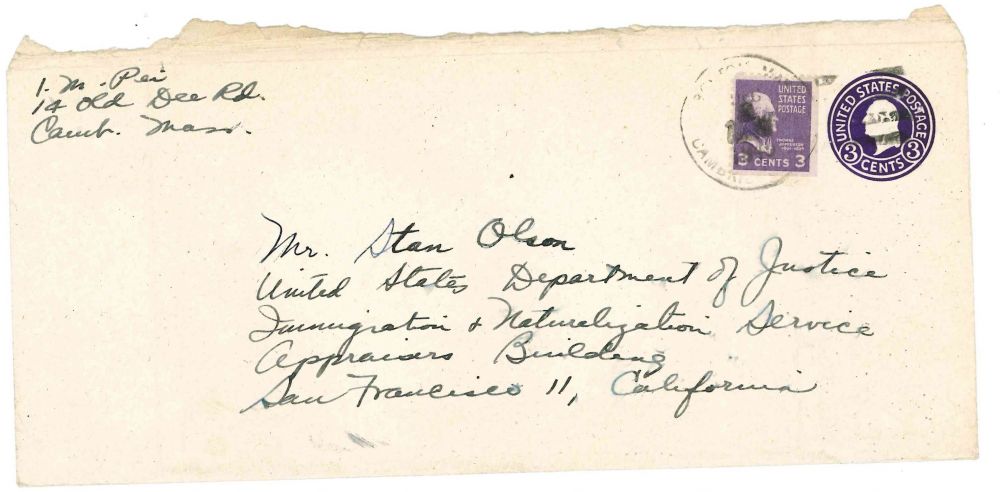 I. M. Pei
14 Old Dee Rd.
Camb. Mass.
BOSTON, MASS.
CAMBRIDGE
UNITED
STATES
POSTAGE
THOMAS
JEFFERSON
1801-1809
3 CENTS 3
UNITED STATES POSTAGE
3 CENTS 3
Mr. Stan Olson
United States Department of Justice
Immigration & Naturalization Service
Appraisers Building
San Francisco 11, California